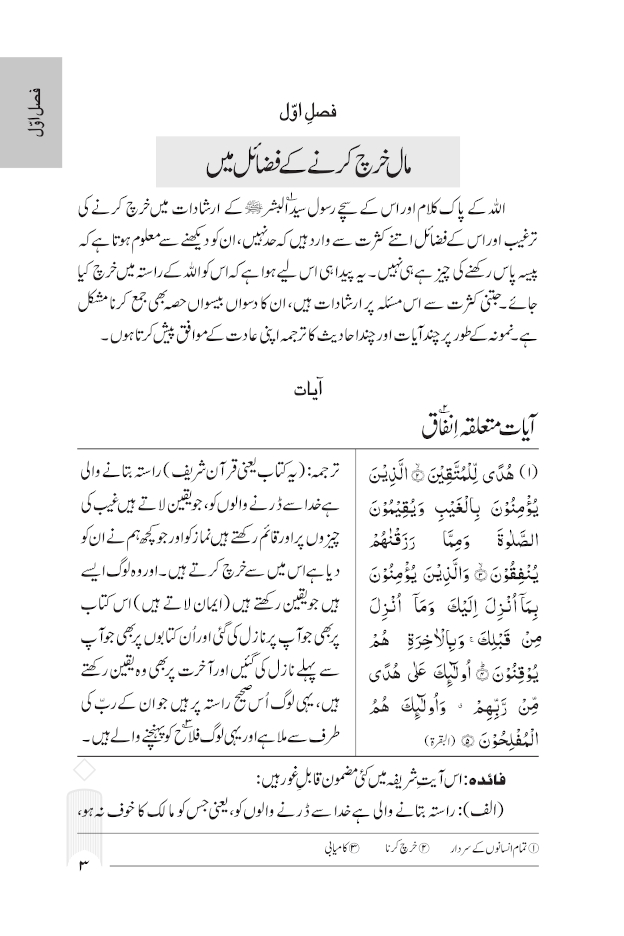 فصل اوّل
فصلِ اوّل
مال خرچ کرنے کے فضائل میں
اللہ کے پاک کلام اور اس کے سچے رسول سید البشر ﷺ① کے ارشادات میں خرچ کرنے کی
ترغیب اور اس کے فضائل اتنے کثرت سے وارد ہیں کہ حد نہیں، ان کو دیکھنے سے معلوم ہوتا ہے کہ
پیسہ پاس رکھنے کی چیز ہے ہی نہیں۔ یہ پیدا ہی اس لیے ہوا ہے کہ اس کو اللہ کے راستہ میں خرچ کیا
جائے۔ جتنی کثرت سے اس مسئلہ پر ارشادات ہیں، ان کا دسواں بیسواں حصہ بھی جمع کرنا مشکل
ہے۔ نمونہ کے طور پر چند آیات اور چند احادیث کا ترجمہ اپنی عادت کے موافق پیش کرتا ہوں۔
آیات
آیات متعلقہ اِنفاق②
(۱) هُدًى لِّلْمُتَّقِيْنَ ۙ﴿۲﴾ الَّذِيْنَ
يُؤْمِنُوْنَ بِالْغَيْبِ وَيُقِيْمُوْنَ
الصَّلٰوةَ وَمِمَّا رَزَقْنٰهُمْ
يُنْفِقُوْنَ ۙ﴿۳﴾ وَالَّذِيْنَ يُؤْمِنُوْنَ
بِمَآ اُنْزِلَ اِلَيْكَ وَمَآ اُنْزِلَ
مِنْ قَبْلِكَ ۚ وَبِالْاٰخِرَةِ هُمْ
يُوْقِنُوْنَ ؕ﴿۴﴾ اُولٰٓئِكَ عَلٰى هُدًى
مِّنْ رَّبِّهِمْ ۗ وَاُولٰٓئِكَ هُمُ
الْمُفْلِحُوْنَ ﴿۵﴾ (البقرة)
ترجمہ: (یہ کتاب یعنی قرآن شریف) راستہ بتانے والی
ہے خدا سے ڈرنے والوں کو، جو یقین لاتے ہیں غیب کی
چیزوں پر اور قائم رکھتے ہیں نماز کو اور جو کچھ ہم نے ان کو
دیا ہے اس میں سے خرچ کرتے ہیں۔ اور وہ لوگ ایسے
ہیں جو یقین رکھتے ہیں (ایمان لاتے ہیں) اس کتاب
پر بھی جو آپ پر نازل کی گئی اور اُن کتابوں پر بھی جو آپ
سے پہلے نازل کی گئیں اور آخرت پر بھی وہ یقین رکھتے
ہیں، یہی لوگ اُس صحیح راستہ پر ہیں جو ان کے ربّ کی
طرف سے ملا ہے اور یہی لوگ فلاح③ کو پہنچنے والے ہیں۔
فائدہ: اس آیتِ شریفہ میں کئی مضمون قابلِ غور ہیں:
(الف): راستہ بتانے والی ہے خدا سے ڈرنے والوں کو، یعنی جس کو مالک کا خوف نہ ہو،
① تمام انسانوں کے سردار ② خرچ کرنا ③ کامیابی
۳